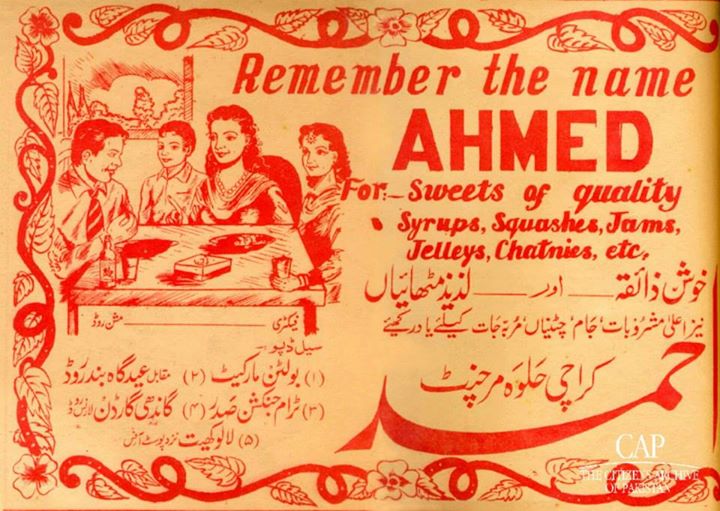 Remember the name
AHMED
For:- Sweets of quality
Syrups, Squashes, Jams,
Jelleys, Chatnies, etc.
خوش ذائقہ ــــــ اور ــــــ لذیذ مٹھائیاں
نیز اعلیٰ مشروبات، جام، چٹنیاں، مربہ جات کیلئے یاد رکھیے
احمد
کراچی حلوہ مرچنٹ
فیکٹری ــــــــــــ مشن روڈ
سیل ڈپو:-
(۱) بولٹن مارکیٹ (۲) مقابل عیدگاہ بندر روڈ
(۳) ٹرام جنکشن صدر (۴) گاندھی گارڈن لارنس روڈ
(۵) لالو کھیت نزد پوسٹ آفس
CAP
THE CITIZENS ARCHIVE
OF PAKISTAN